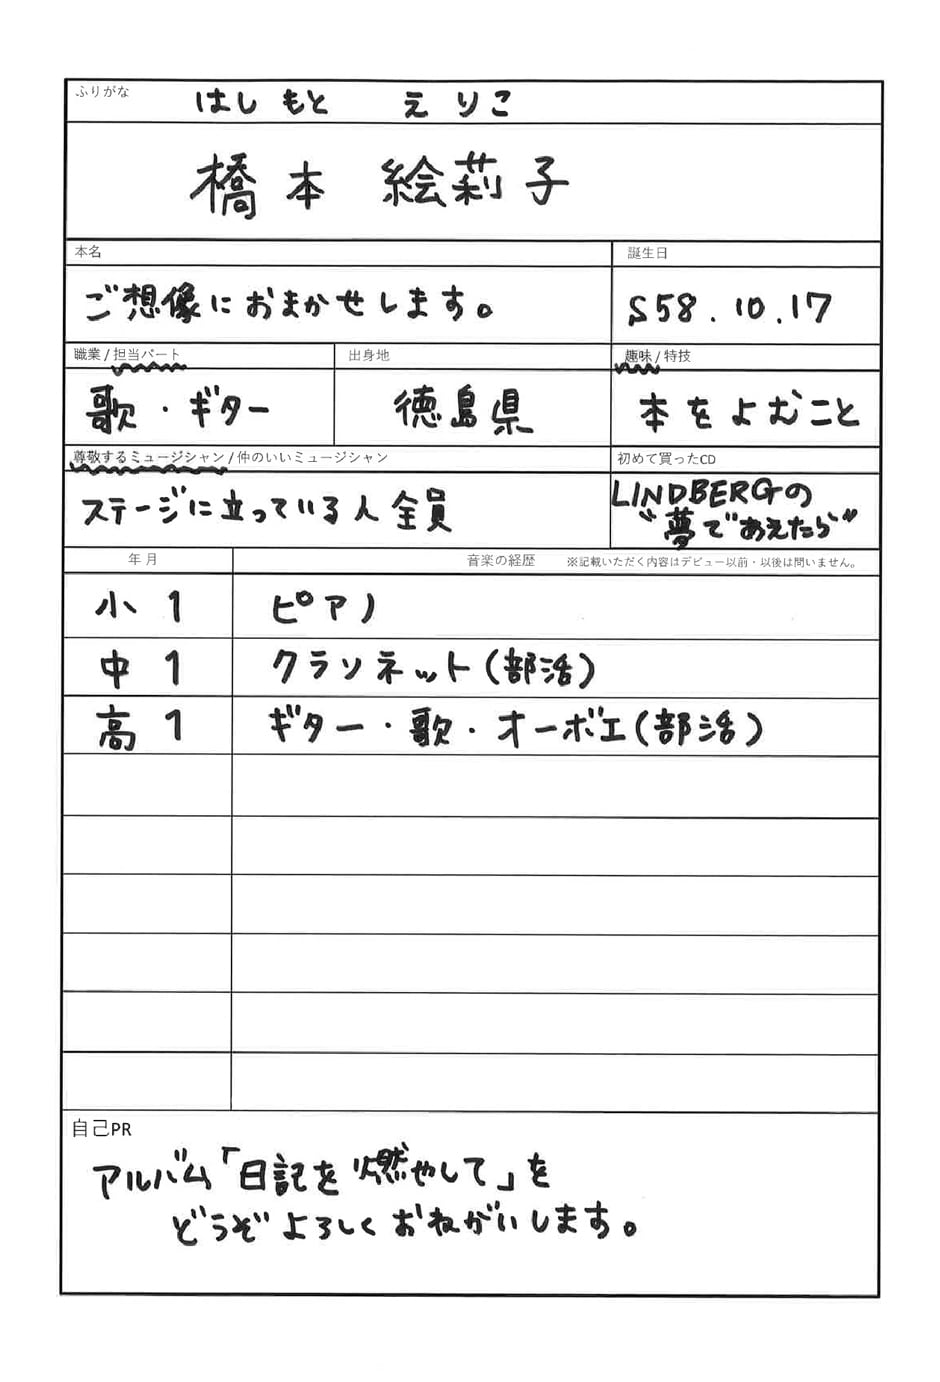 ふりがな
はしもと えりこ
橋本 絵莉子
本名
誕生日
ご想像におまかせします。
S58.10.17
職業/担当パート
出身地
趣味/特技
歌・ギター
徳島県
本をよむこと
尊敬するミュージシャン/仲のいいミュージシャン
初めて買ったCD
ステージに立っている人全員
LINDBERGの
“夢であえたら”
年月
音楽の経歴 ※記載いただく内容はデビュー以前・以後は問いません。
小1 ピアノ
中1 クラリネット(部活)
高1 ギター・歌・オーボエ(部活)
自己PR
アルバム「日記を燃やして」を
どうぞよろしくおねがいします。